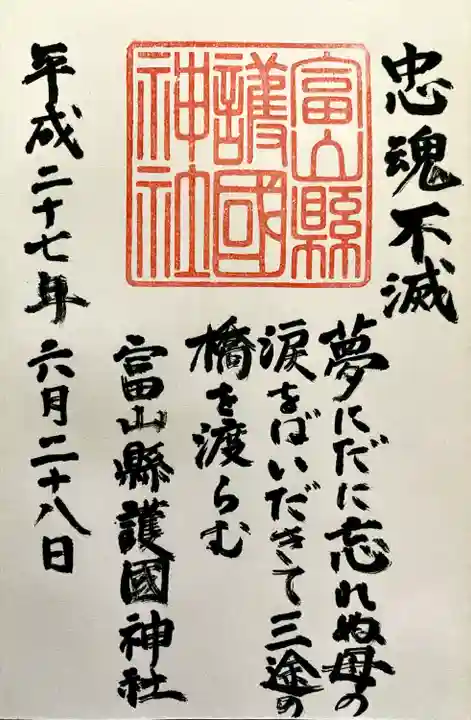 忠魂不滅
富山縣
護國
神社
夢にだに忘れぬ母の
涙をばいだきて三途の
橋を渡らむ
富山縣護國神社
平成二十七年六月二十八日